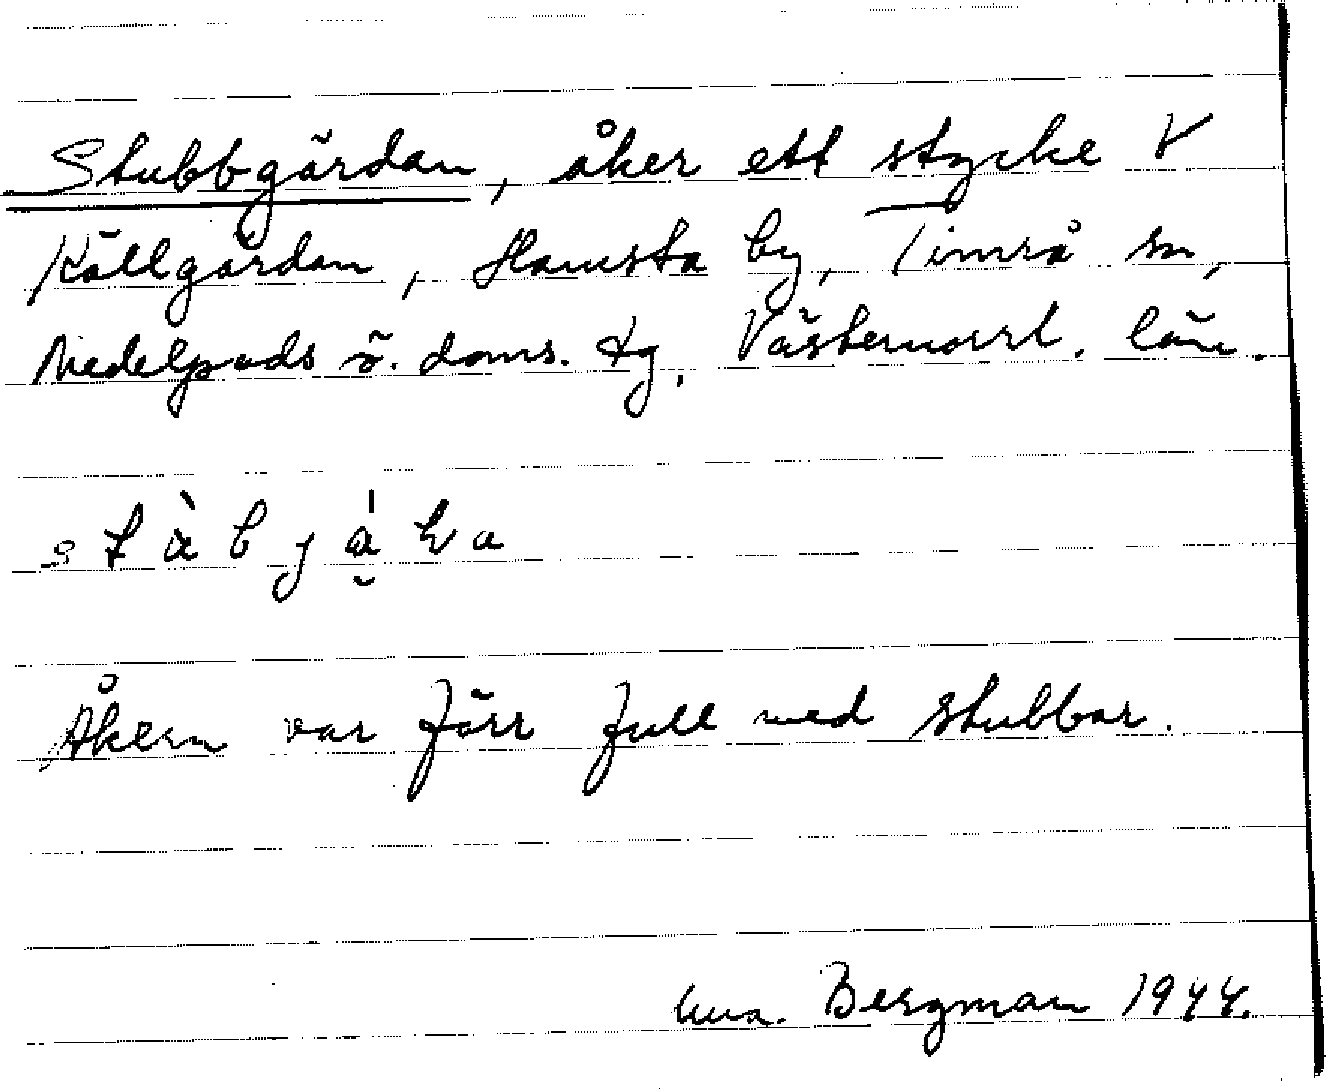 Stubbgärdan, åker ett stycke V
Källgärdan, Hamsta by, Timrå sn,
Medelpads ö. doms. tg, Västernorrl. län.
Åkern var förr full med stubbar.
Bergman 1944.